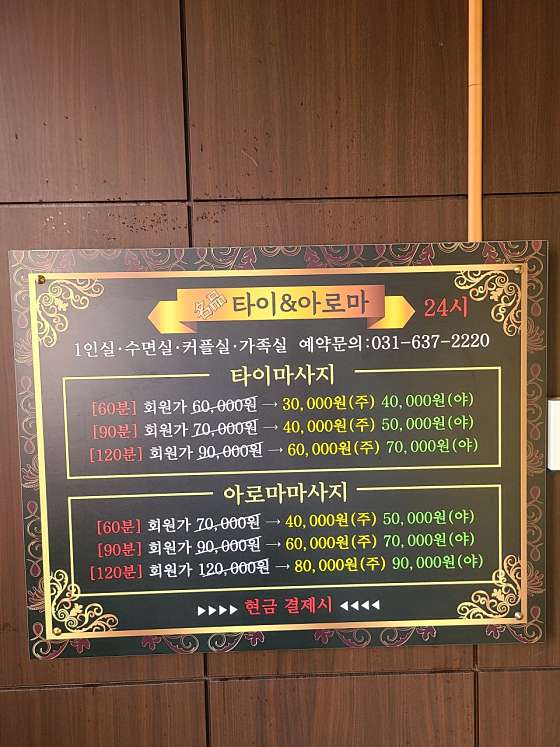 名品 타이&아로마 24시
1인실·수면실·커플실·가족실 예약문의:031-637-2220
타이마사지
[60분] 회원가 60,000원 → 30,000원(주) 40,000원(야)
[90분] 회원가 70,000원 → 40,000원(주) 50,000원(야)
[120분] 회원가 90,000원 → 60,000원(주) 70,000원(야)
아로마마사지
[60분] 회원가 70,000원 → 40,000원(주) 50,000원(야)
[90분] 회원가 90,000원 → 60,000원(주) 70,000원(야)
[120분] 회원가 120,000원 → 80,000원(주) 90,000원(야)
▶▶▶▶ 현금 결제시 ◀◀◀◀